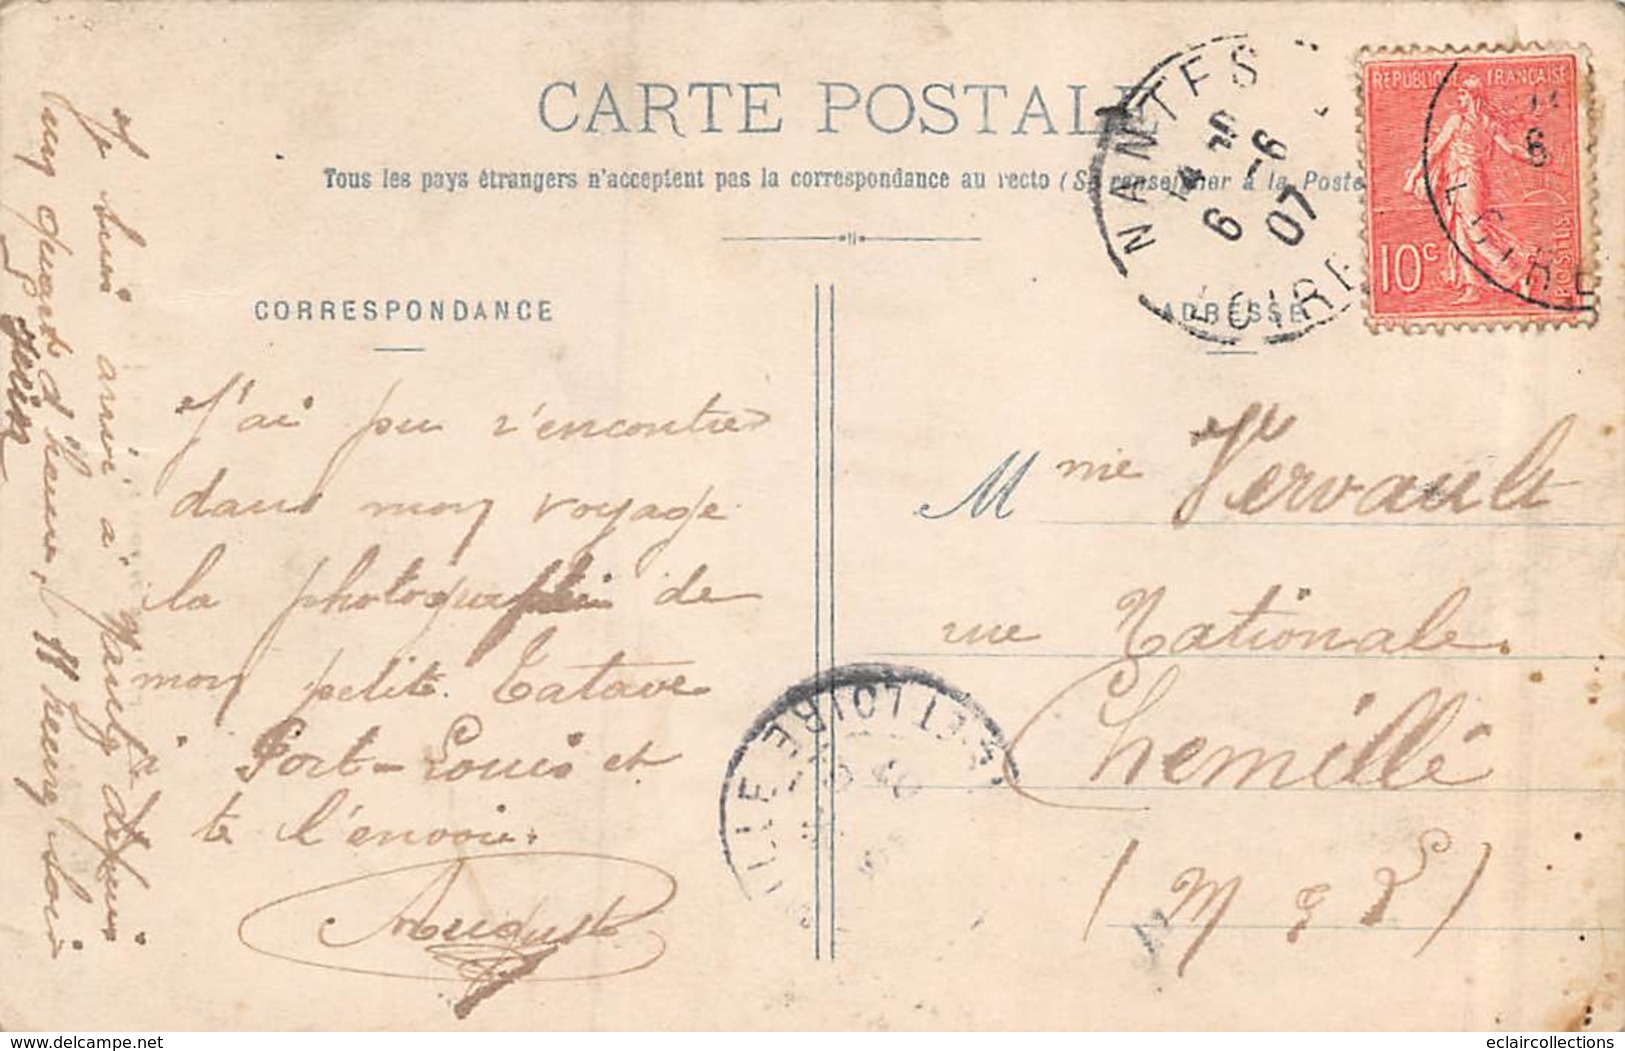 CARTE POSTALE
Tous les pays étrangers n'acceptent pas la correspondance au recto (Se renseigner à la Poste
CORRESPONDANCE
ADRESSE
NANTES
6 -6
07
LOIRE
REPUBLIQUE FRANÇAISE
10c
POSTES
LOIRE
J'ai pu r'encontrer
dans mon voyage
la photographie de
mon petit Tatave
à Port-Louis et
te l'envoie.
Auguste
Je suis arrivé à Nantes depuis
un quart d'heure, 11 heures soir
Mme Vervault
rue Nationale.
Chemillé
(M & L)
ET LOIRE
delcampe.net
eclaircollections